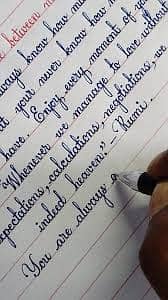 between m
always know how mu
at your never know how
Enjoy every moment of
have
"Whenever we manage to love with
expectations, calculations, negotiations, we
indeed heaven." - Rumi.
You are always